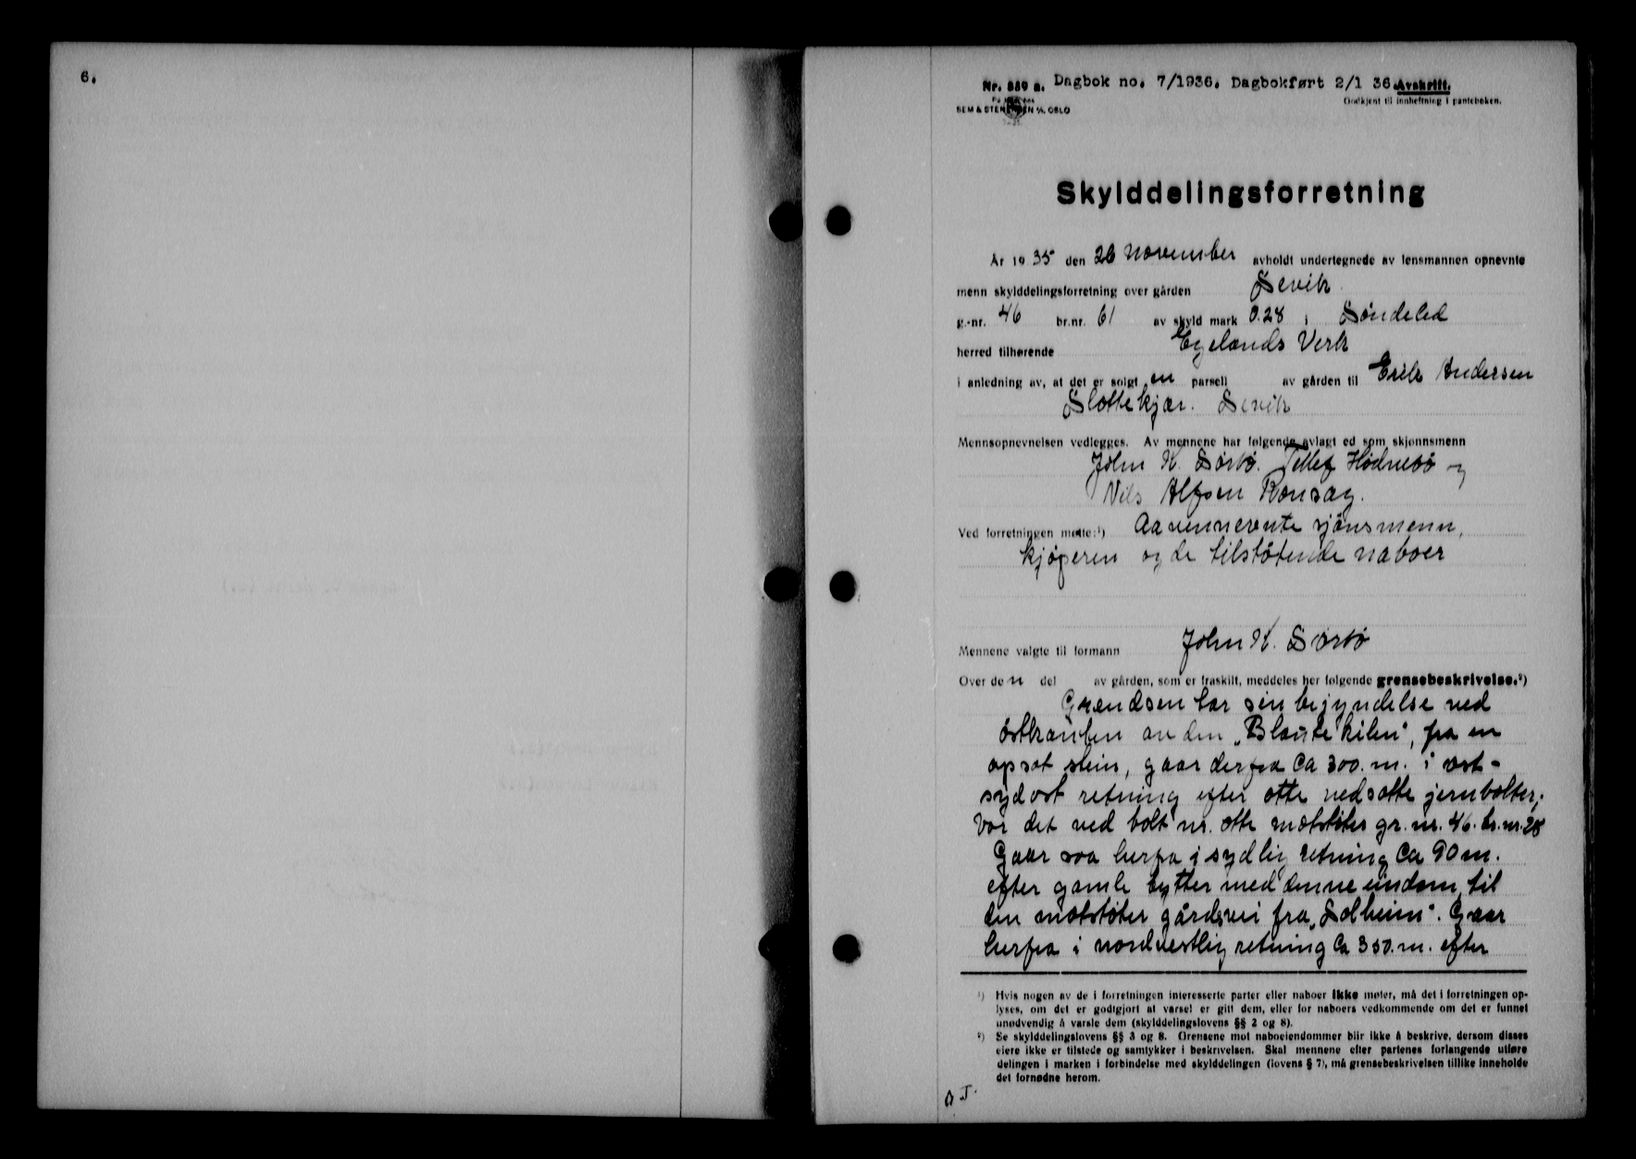 6.
Nr. 889 a. Dagbok no. 7/1936. Dagbokført 2/1 36. Avskrift.
Godkjent til innheftning i panteboken.
SEM & STENERSEN A/S, OSLO
Skylddelingsforretning
År 1935 den 26 November avholdt undertegnede av lensmannen opnevnte
menn skylddelingsforretning over gården Sevik
g.-nr. 46 br.nr. 61 av skyld mark 0.28 i Søndeled
herred tilhørende Egelands Verk
i anledning av, at det er solgt en parsell av gården til Erik Andersen
Slottekjær. Sevik
Mennsopnevnelsen vedlegges. Av mennene har følgende avlagt ed som skjønnsmenn
John K. Sørbø. Tellef Hødnebø og
Nils Alfsen
Ved forretningen møtte:¹)
kjøperen og de tilstøtende naboer
Mennene valgte til formann John K. Sørbø
Over den del av gården, som er fraskilt, meddeles her følgende grensebeskrivelse.²)
Grændsen tar sin begyndelse ved
østkanten av den „Blaute kilen", fra en
opsat stein, gaar derfra ca 300. m. i øst-
sydost retning efter otte nedsatte jernbolter;
vor det ved bolt nr. otte møtstøter gr. nr. 46. br. nr. 28
Gaar saa herfra i sydlig retning ca 90 m.
efter gamle bytter med denne eindom, til
den møtstøter gårdsvei fra „Solheim". Gaar
herfra i nordvestlig retning ca 350. m. efter
¹) Hvis nogen av de i forretningen interesserte parter eller naboer ikke møter, må det i forretningen op-
lyses, om det er godtgjort at varsel er gitt dem, eller for naboers vedkommende om det er funnet
unødvendig å varsle dem (skylddelingslovens §§ 2 og 8).
²) Se skylddelingslovens §§ 3 og 8. Grensene mot naboeiendommer blir ikke å beskrive, dersom disses
eiere ikke er tilstede og samtykker i beskrivelsen. Skal mennene efter partenes forlangende utføre
delingen i marken i forbindelse med skylddelingen (lovens § 7), må grensebeskrivelsen tillike inneholde
det fornødne herom.